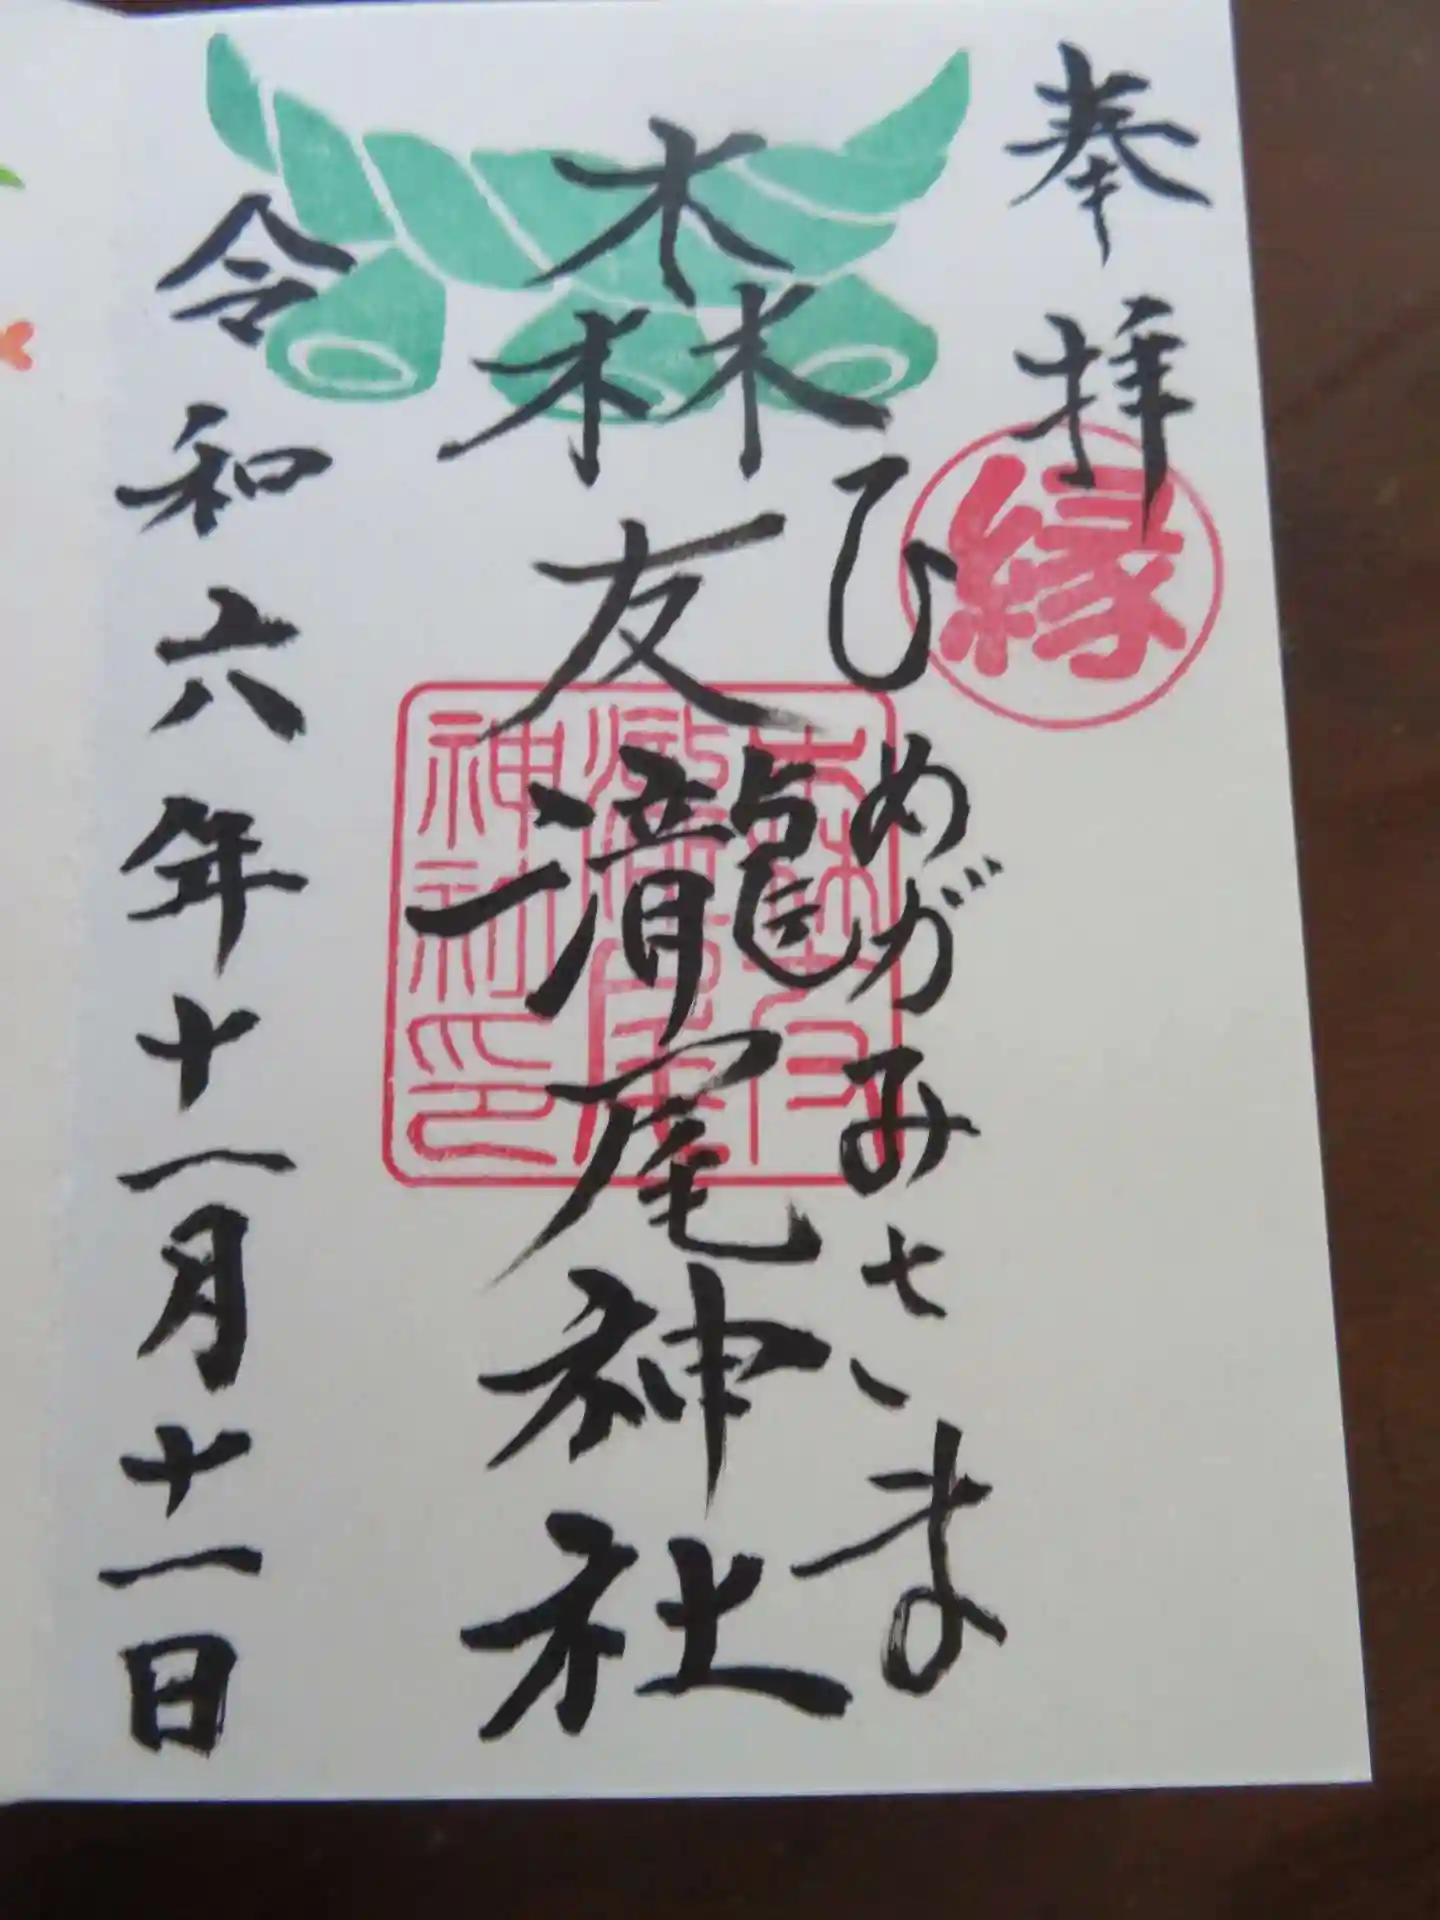 奉拝
縁
ひめがみさま
森友瀧尾神社
森友
瀧尾
神社印
令和六年十一月十一日